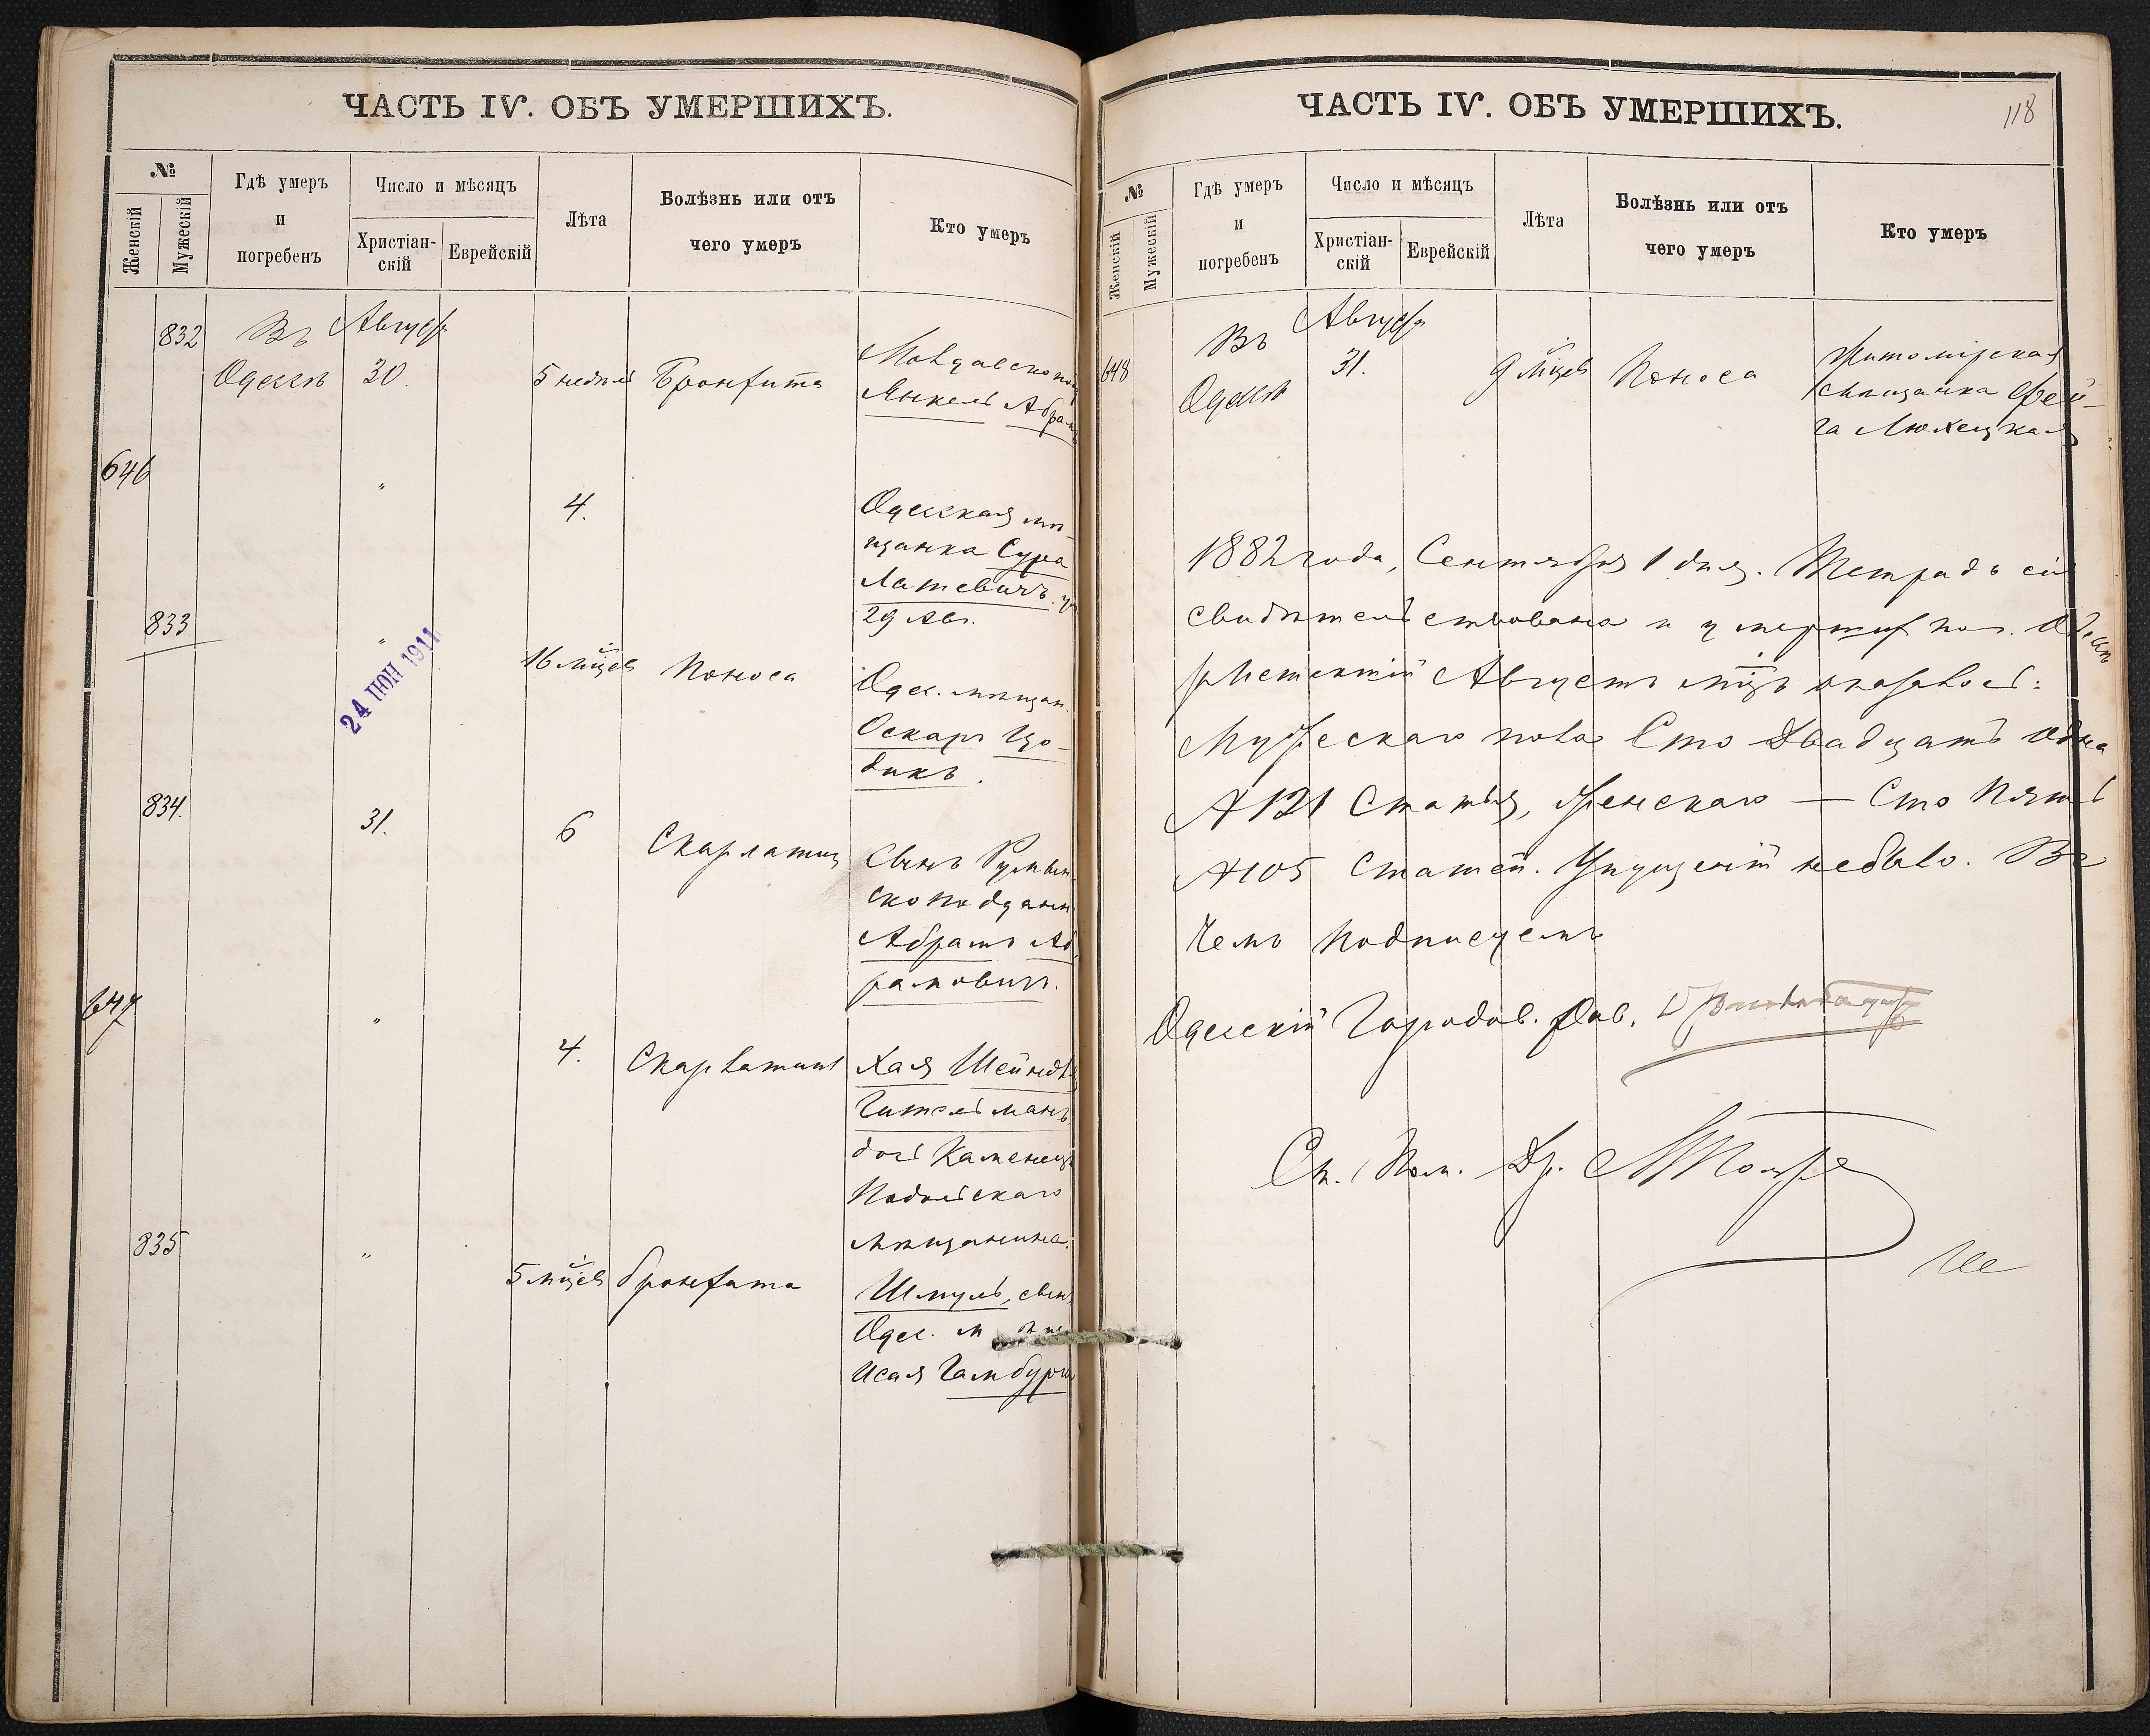 ЧАСТЬ IV. ОБЪ УМЕРШИХЪ.
№
Женскій
Мужескій
Гдѣ умеръ
и
погребенъ
Число и мѣсяцъ
Христіан-
скій
Еврейскій
Лѣта
Болѣзнь или отъ
чего умеръ
Кто умеръ
832
Въ
Одессѣ
Августа
30.
5 недѣль
Бронхита
Янкель Абрам
646
"
4.
Одесская мѣ-
щанка Сура
29 Авг.
833
"
16 мцевъ
Поноса
Одес. мѣщан.
Оскаръ Цо-
дикъ.
24 ИЮН 1911
834.
31.
6
Скарлатин
Сынъ Румын-
скоподдан
Абрамъ Аб
рамовичъ.
647
"
4.
Скарлатины
Хая Шейндль
Гительманъ
дочь Каменец
Подольскаго
мѣщанина.
835
"
5 мцевъ
бронхита
Шмуль, сынъ
Одес. м
Исая Гамбурга
ЧАСТЬ IV. ОБЪ УМЕРШИХЪ.
118
№
Женскій
Мужескій
Гдѣ умеръ
и
погребенъ
Число и мѣсяцъ
Христіан-
скій
Еврейскій
Лѣта
Болѣзнь или отъ
чего умеръ
Кто умеръ
648
Въ
Одессѣ
Августа
31.
9 мцевъ
Поноса
Житомірская
мѣщанка Фей-
га
1882 года, Сентября 1 дня. Тетрадь сія
свидѣтельствована и умершихъ по
Августъ мцъ оказалось:
Мужескаго пола Сто Двадцать одна
№ 121 Статья, женскаго — Сто Пять
№ 105 Статей. Упущеній небыло. Въ
чемъ подписуемъ
Одесскій Городов. Рав.
Ст. Пом. Др.